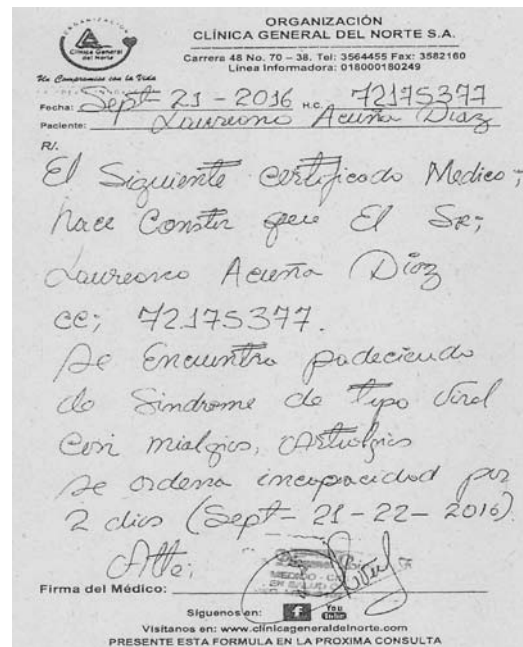 ORGANIZACIÓN
CLÍNICA GENERAL DEL NORTE S.A.
Carrera 48 No. 70 – 38. Tel: 3564455 Fax: 3582160
Linea Informadora: 018000180249
ORGANIZACIÓN
Clínica General
del Norte
Un Compromiso con la Vida
Fecha: Sept- 21 - 2016 H.C. 72175377
Paciente: Laureano Acuña Diaz
R/.
El Siguiente Certificado Medico;
hace Constar que El Sr;
Laureano Acuña Díaz
cc; 72175377.
se Encuentra padeciendo
de Sindrome de Tipo Viral
con mialgias, Artralgias
se ordena incapacidad por
2 dias (Sept- 21-22- 2016).
Atte;
MEDICO
EN SALUD
Firma del Médico:
Síguenos en: f You Tube
Visítanos en: www.clinicageneraldelnorte.com
PRESENTE ESTA FORMULA EN LA PROXIMA CONSULTA